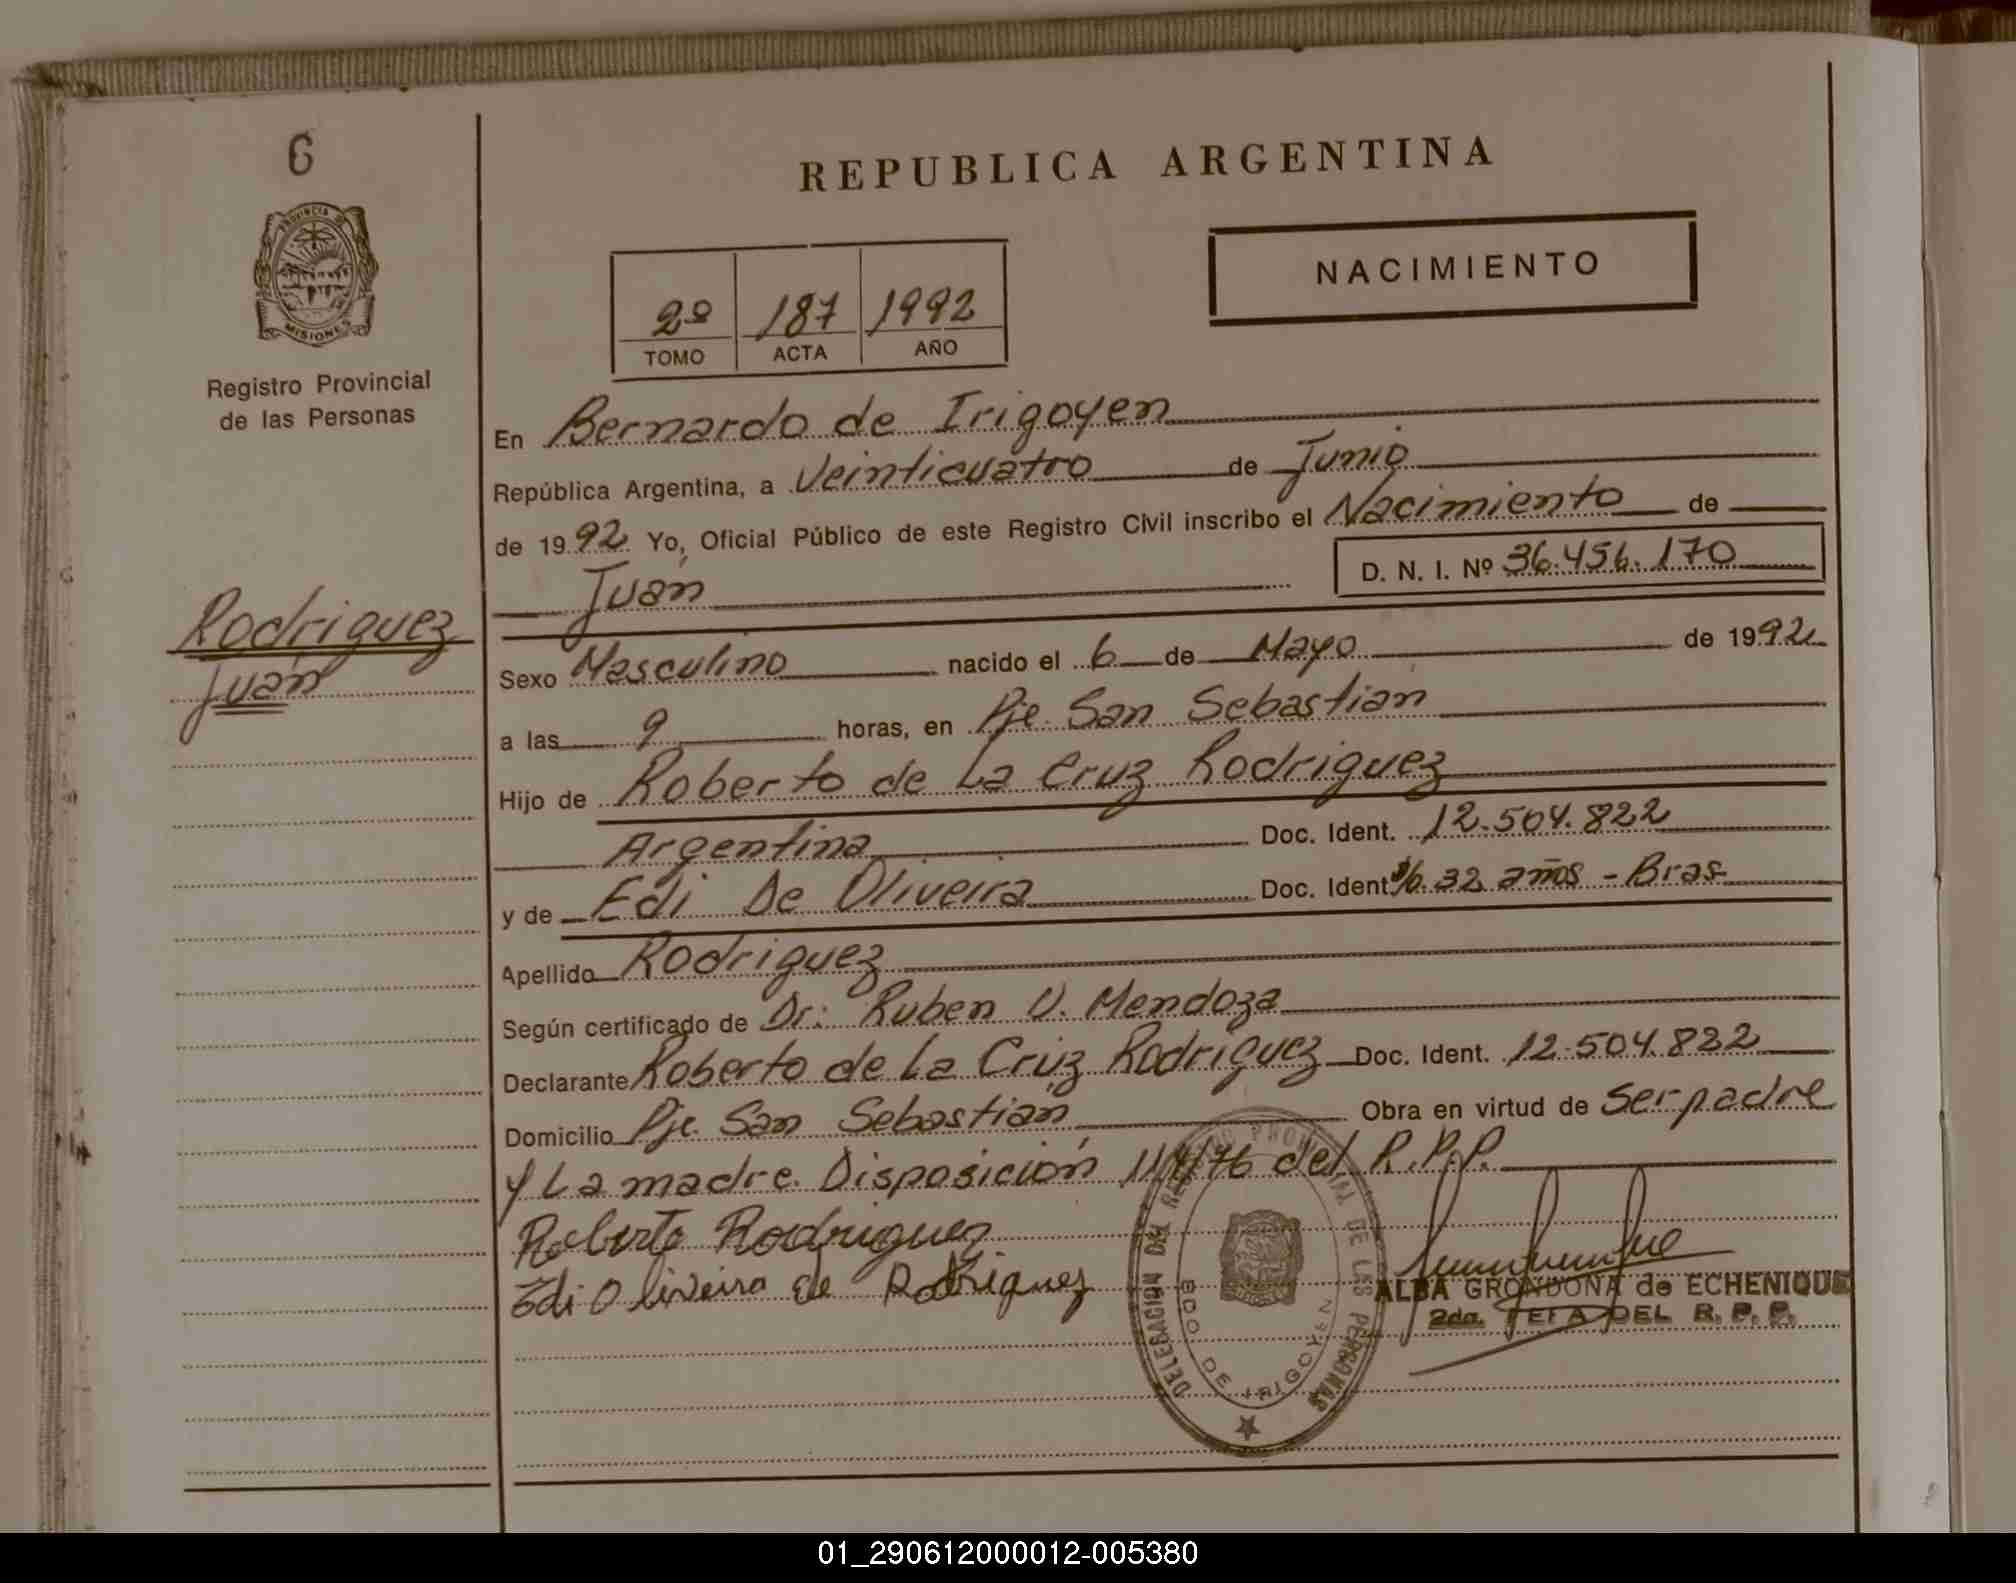 6
PROVINCIA DE
MISIONES
Registro Provincial
de las Personas
Rodriguez
Juan
REPUBLICA ARGENTINA
NACIMIENTO
2º 187 1992
TOMO ACTA AÑO
En Bernardo de Irigoyen
República Argentina, a Veinticuatro de Junio
de 1992 Yo, Oficial Público de este Registro Civil inscribo el Nacimiento de
Juan D. N. I. Nº 36.456.170
Sexo Masculino nacido el 6 de Mayo de 1992
a las 9 horas, en Pje. San Sebastian
Hijo de Roberto de La Cruz Rodriguez
Argentina Doc. Ident. 12.504.822
y de Edi De Oliveira Doc. Ident. 32 años - Bras.
Apellido Rodriguez
Según certificado de Dr: Ruben V. Mendoza
Declarante Roberto de La Cruz Rodriguez Doc. Ident. 12.504.822
Domicilio Pje. San Sebastian Obra en virtud de ser padre
y La madre. Disposición del R.P.P.
Roberto Rodriguez
Edi Oliveira de Rodriguez
DELEGACION DEL REGISTRO PROVINCIAL DE LAS PERSONAS
BDO DE IRIGOYEN
ALBA GRONDONA de ECHENIQUE
2da. JEFA DEL R. P. P.
01_290612000012-005380